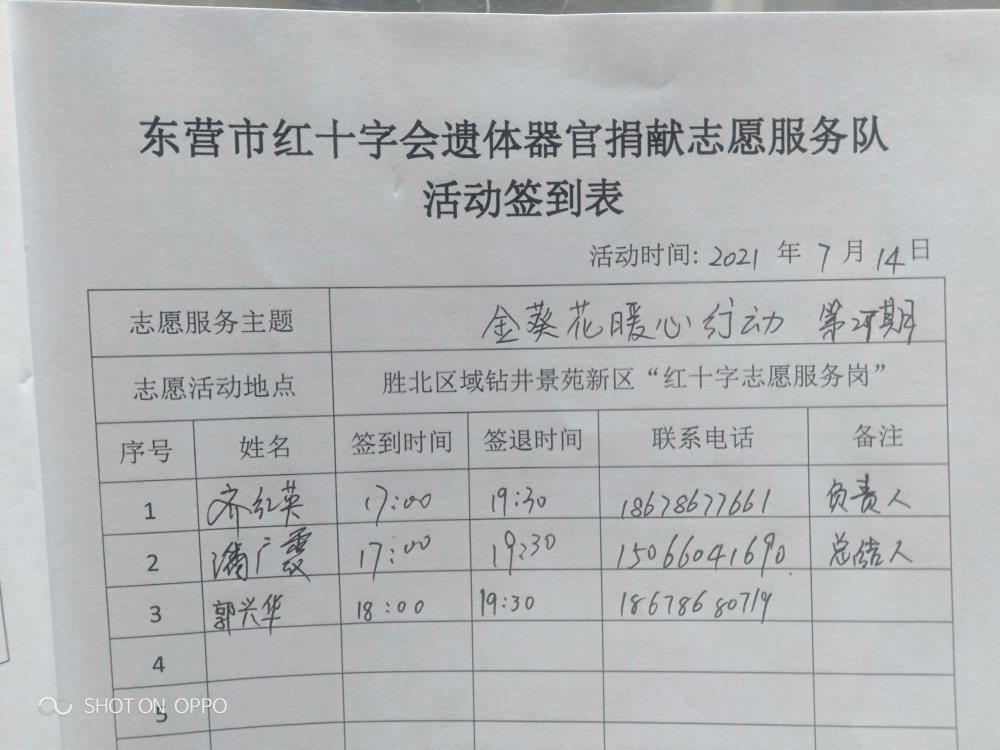 东营市红十字会遗体器官捐献志愿服务队
活动签到表
活动时间: 2021 年 7 月 14 日
志愿服务主题 金葵花暖心行动 第 期
志愿活动地点 胜北区域钻井景苑新区“红十字志愿服务岗”
序号 姓名 签到时间 签退时间 联系电话 备注
1 齐红英 17:00 19:30 18678677661 负责人
2 潘广霞 17:00 19:30 15066041690 总结人
3 郭兴华 18:00 19:30 18678680719
4
5
SHOT ON OPPO